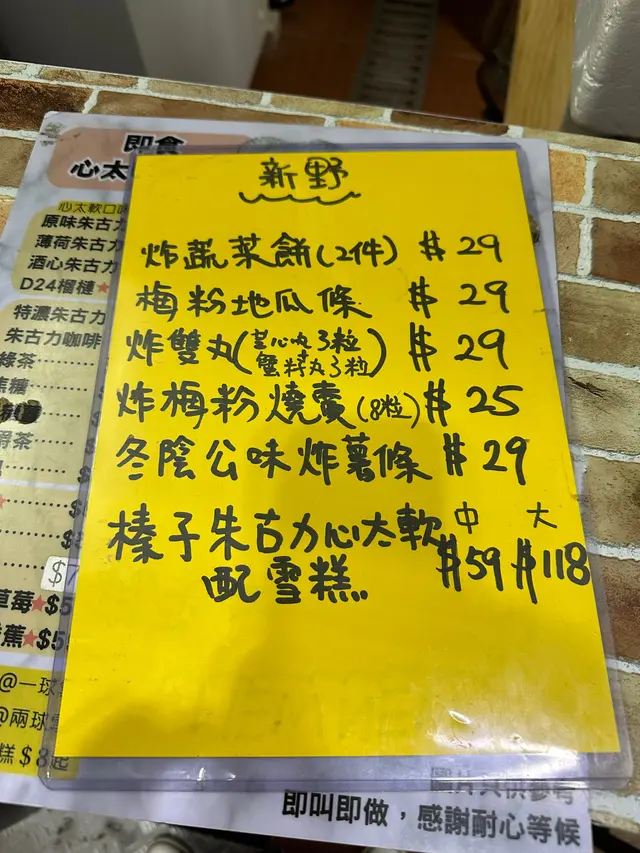 新野
炸蔬菜餅(2件) $29
梅粉地瓜條 $29
炸雙丸(芝心丸3粒 蟹籽丸3粒) $29
炸梅粉燒賣(8粒) $25
冬陰公味炸薯條 $29
榛子朱古力心太軟 中 $59 大 $118
配雪糕
即食
心太
心太軟口味
原味朱古力
薄荷朱古力
酒心朱古力
D24榴槤★
特濃朱古力
朱古力咖啡
綠茶
$7
草莓★$5
蕉★$5
@一球
@兩球雪
糕$8起
圖片只供參考
即叫即做，感謝耐心等候